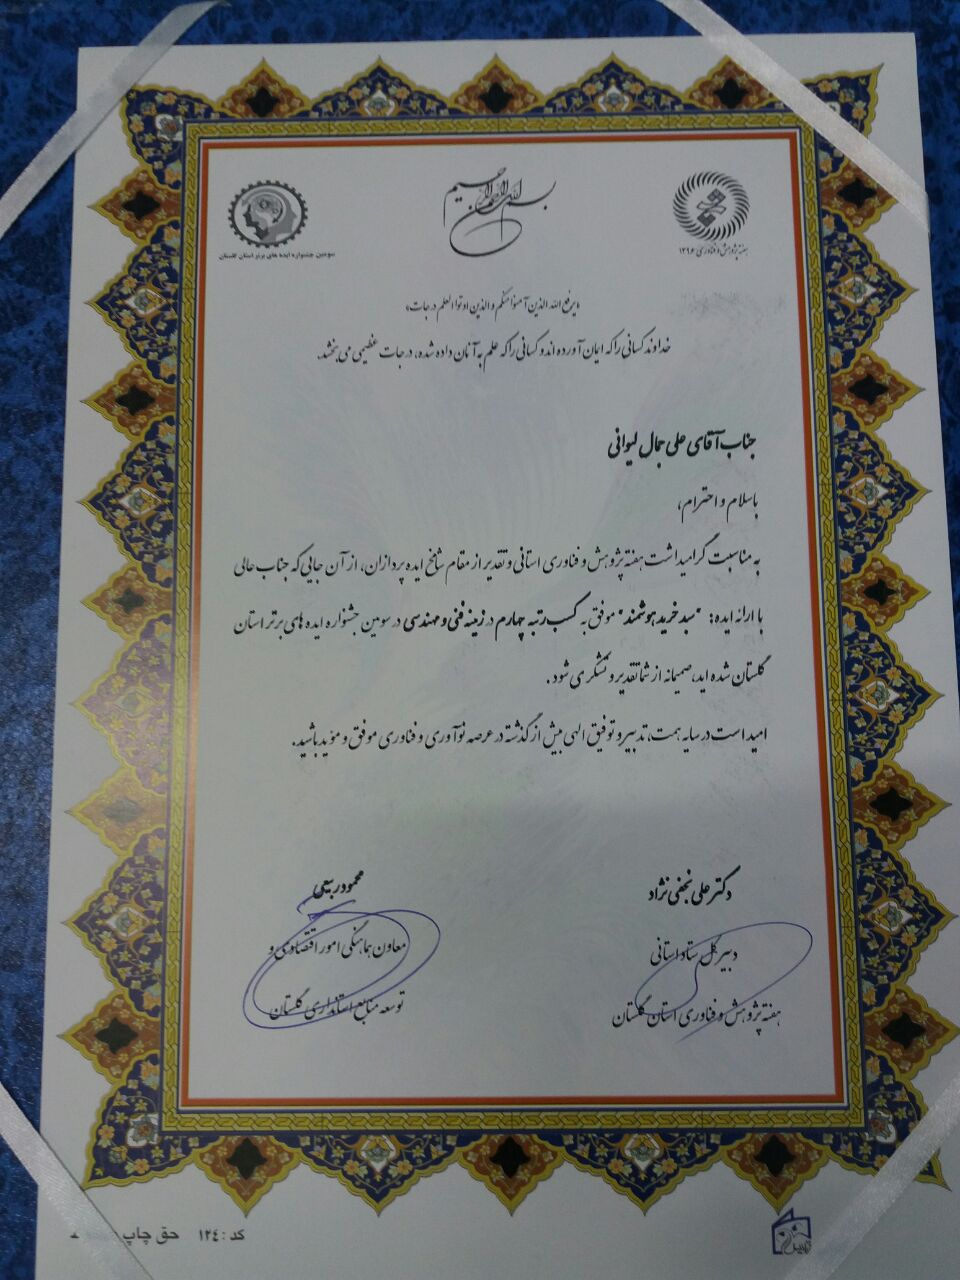 بسم الله الرحمن الرحیم
هفته پژوهش و فناوری ۱۳۹۶
سومین جشنواره ایده های برتر استان گلستان
«یرفع الله الذین آمنوا منکم و الذین اوتوا العلم درجات»
خداوند کسانی را که ایمان آورده اند و کسانی را که علم به آنان داده شده، درجات عظیمی می بخشد.
جناب آقای علی جمال لیوانی
با سلام و احترام،
به مناسبت گرامیداشت هفته پژوهش و فناوری استانی و تقدیر از مقام شامخ ایده پردازان، از آن جایی که جناب عالی
با ارائه ایده: "سبد خرید هوشمند" موفق به کسب رتبه چهارم در زمینه فنی و مهندسی در سومین جشنواره ایده های برتر استان
گلستان شده اید، صمیمانه از شما تقدیر و تشکر می شود.
امید است در سایه همت، تدبیر و توفیق الهی بیش از گذشته در عرصه نوآوری و فناوری موفق و مؤید باشید.
دکتر علی نجفی نژاد
دبیر کل ستاد استانی
هفته پژوهش و فناوری استان گلستان
محمود ربیعی
معاون هماهنگی امور اقتصادی و
توسعه منابع استانداری گلستان
کد: ۱۲۴ حق چاپ